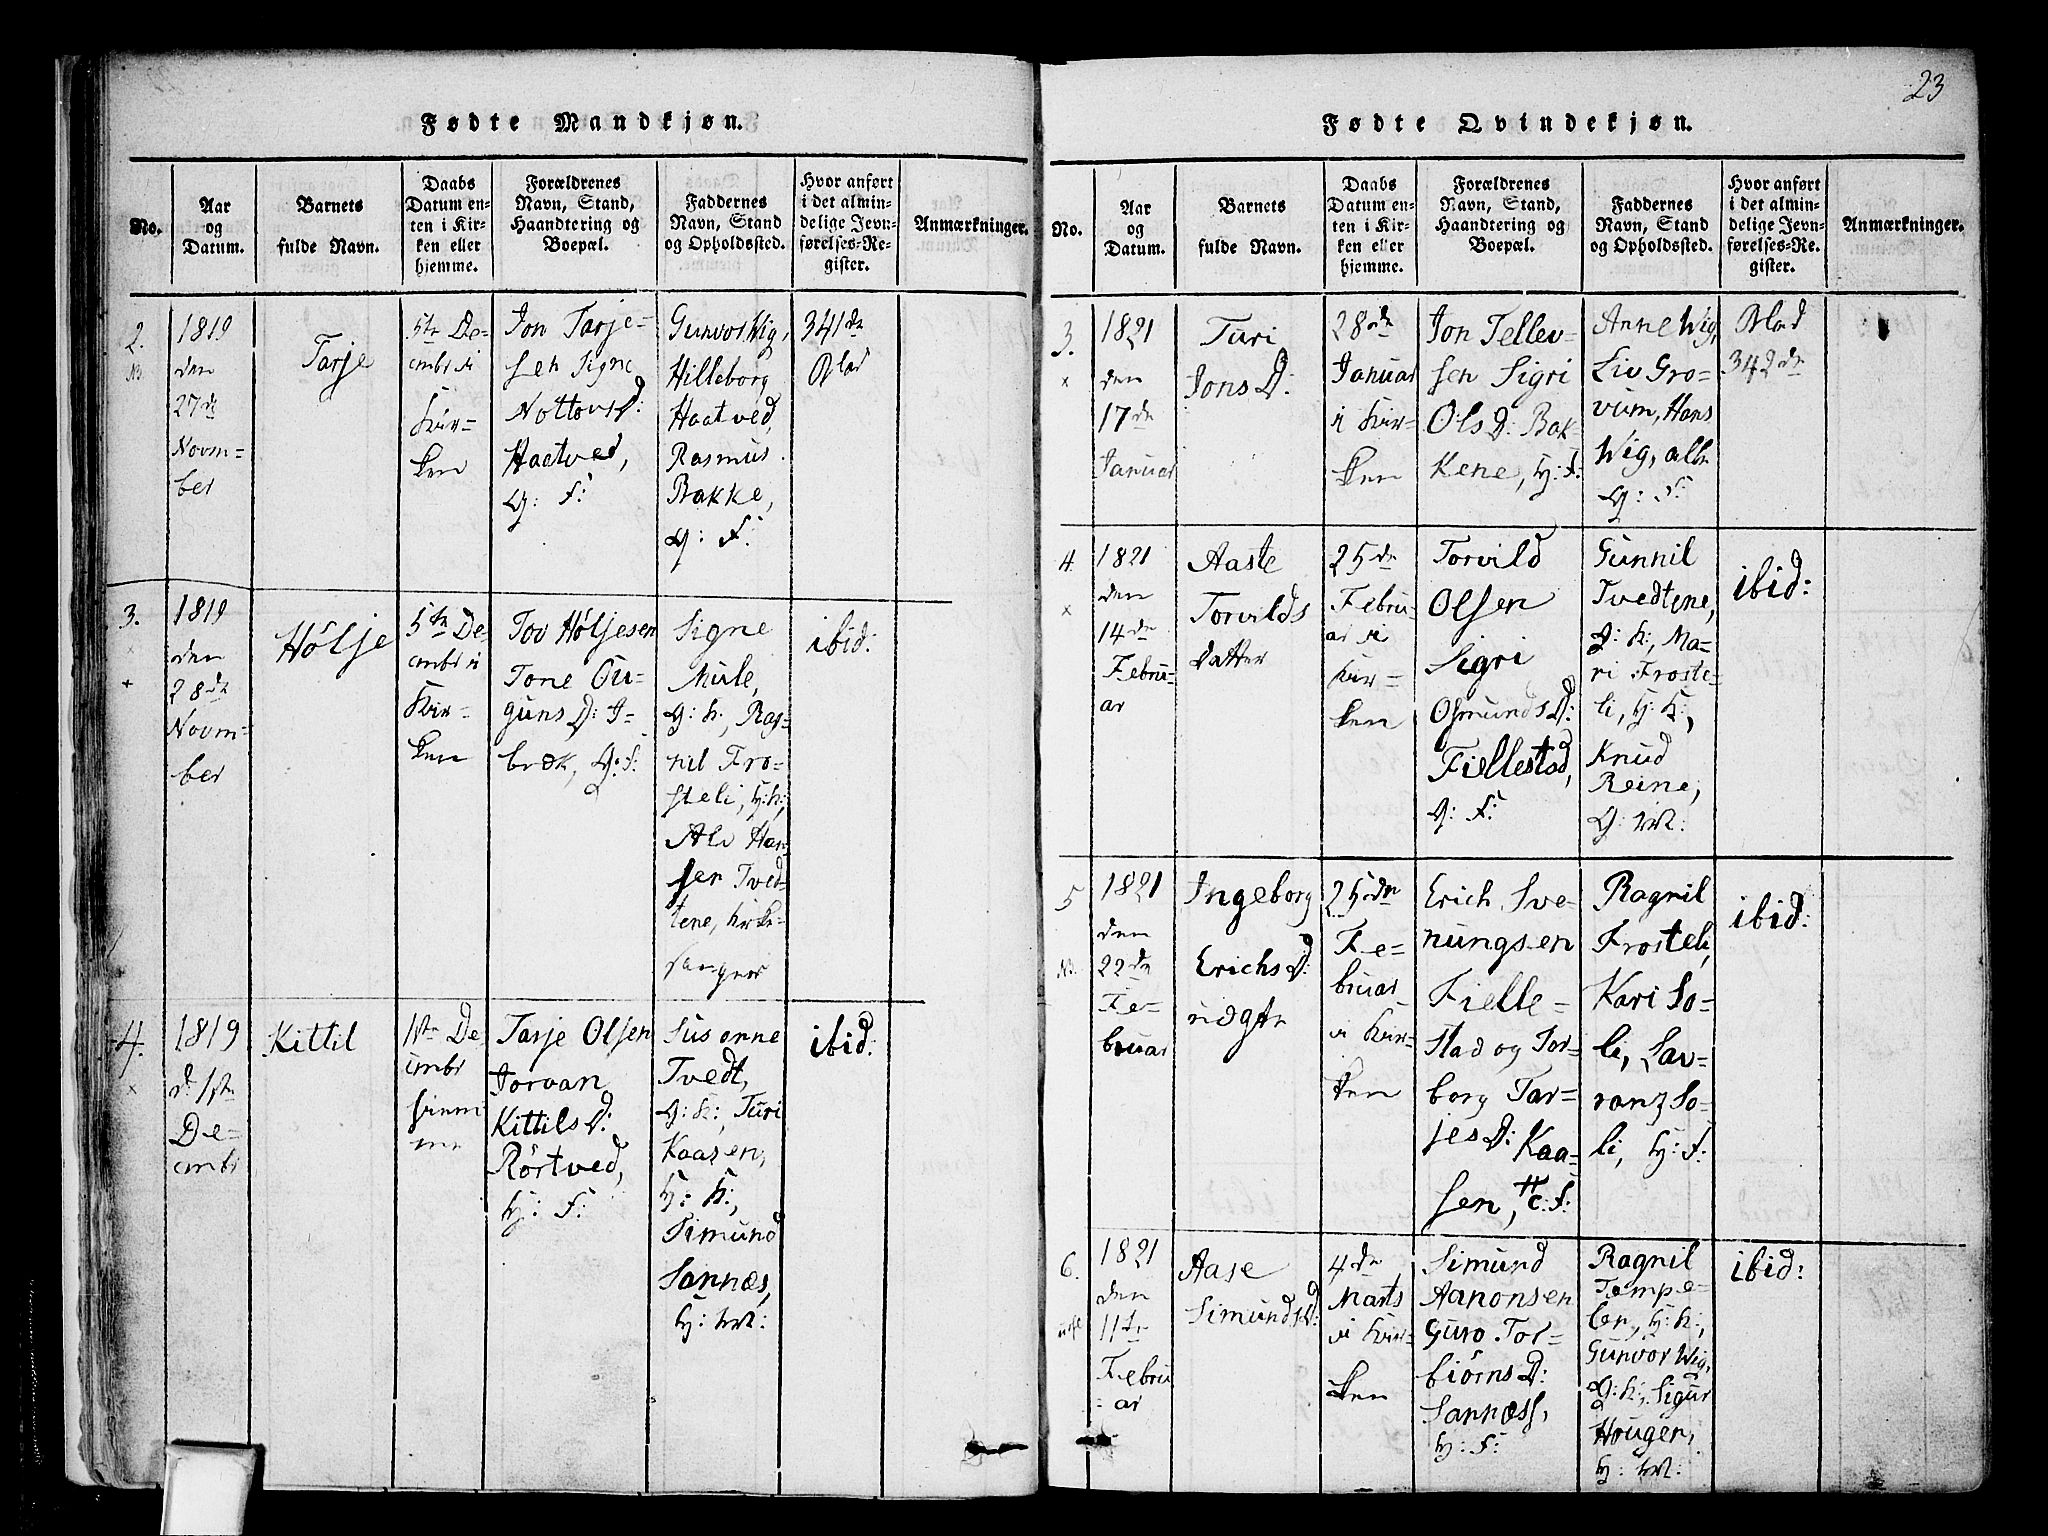 23
Fødte Mandkjøn.
No.
Aar
og
Datum.
Barnets
fulde Navn.
Daabs
Datum en-
ten i Kir-
ken eller
hjemme.
Forældrenes
Navn, Stand,
Haandtering og
Boepæl.
Faddernes
Navn, Stand
og Opholdssted.
Hvor anført
i det almin-
delige Jevn-
førelses-Re-
gister.
Anmærkninger.
2.
1819
den
27de
Novm=
ber
Tarje
5te De-
cmbr i
Kir=
ken
Jon Tarje=
sen Signe
Nottovs D:
Haatved,
G: F:
Gunvor Wig,
Hilleborg
Haatved,
Rasmus
Bakke,
G: F:
341de
Blad
3.
1819
den
28de
Novm=
ber
Höljе
5te De
cmbr i
Kir=
ken
Tov Höljesen
Tone Ou-
guns D:
bræk, G: F:
Signe
Mule,
G: K:, Rag-
nil Fro=
steli, H: K:,
Ale Han
sen Tved-
tene, Kirke-
sanger
ibid:
4.
1819
d: 1ste
De=
cmbr
Kittil
1ste De
cmbr
hiem
me
Tarje Olsen
Jorvan
Kittils D:
Rörtved,
H: F:
Susanne
Tvedt,
G: K:, Turi
Kaasen,
H: K:,
Simund
Sannæs,
H: M:
ibid:
Fødte Qvindekjøn.
No.
Aar
og
Datum.
Barnets
fulde Navn.
Daabs
Datum en-
ten i Kir-
ken eller
hjemme.
Forældrenes
Navn, Stand,
Haandtering og
Boepæl.
Faddernes
Navn, Stand
og Opholdssted.
Hvor anført
i det almin-
delige Jevn-
førelses-Re-
gister.
Anmærkninger.
3.
1821
den
17de
Januar
Turi
Jons D:
28de
Januar
i Kir=
ken
Jon Tellev-
sen Sigri
Ols D: Bak-
kene, H: F:
Anne Wig,
Liv Gro=
vum, Hans
Wig, alle
G: F:
Blad
342de
4.
1821
den
14de
Febru-
ar
Aaste
Torvilds
datter
25de
Febru-
ar i
Kir=
ken
Torvild
Olsen
Sigri
Osmunds D:
Fiellestad,
G: F:
Gunnil
Tvedtene,
G: K:, Ma-
ri Froste-
li, H: K:,
Knud
Reine,
G: M:
ibid:
5
1821
den
22de
Fe-
bruar
Ingeborg
Erichs D:
25de
Fe=
bruar
i Kir=
ken
Erich Sve-
nungsen
Fielle=
stad og Tor-
borg Tar=
jes D: Kaa=
sen, H: F:
Ragnil
Frosteli,
Kari So-
li, Lav-
ranz So-
li, H: F:
ibid:
6.
1821
den
11te
Febru
-ar
Aase
Simunds D:
4de
Marts
i Kir=
ken
Simund
Aanonsen
Guro Tor=
biörns D:
Sannæss,
H: F:
Ragnil
Tempe=
len, H: K:,
Gunvor Wig,
G: K:, Sigur
Hougen,
H: M:
ibid: